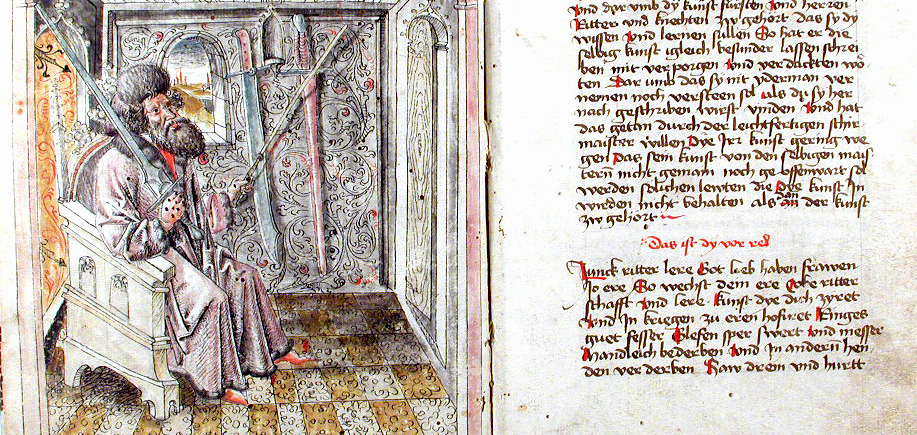 vnd der vmb dy kunst fursten vnd herren
Ritter vnd knechten zw gehort das sy dy
wissen vnd lernen sullen So hat er die
selbig kunst igleich besunder lassen schrei
ben mit verporgen vnd verdackten wo
ten Dar vmb das sy nit yderman ver
nemen noch versteen sol als du sy her
nach geschriben wirst vinden vnd hat
das getan durch der leichtfertigen schir
maister willen Dye Irr kunst gering we
gen Das sein kunst von den selbigen mais
teren nicht gemain noch geoffenwart sol
werden solichen lewten die der kunst In
wirden nicht behalten als dan der kunst
zw gehort
Das ist dy vor red
Junck ritter lere Got lieb haben frawen
Jo ere So wechst dein ere Vbe ritter
schafft vnd lere kunst dye dich zyret
vnd In kriegen zu eren hofiret Ringes
guet fesser Glefen sper swert vnd messer
Mandleich bederben vnd In andern hen
den verderben Haw drein vnd hurtt